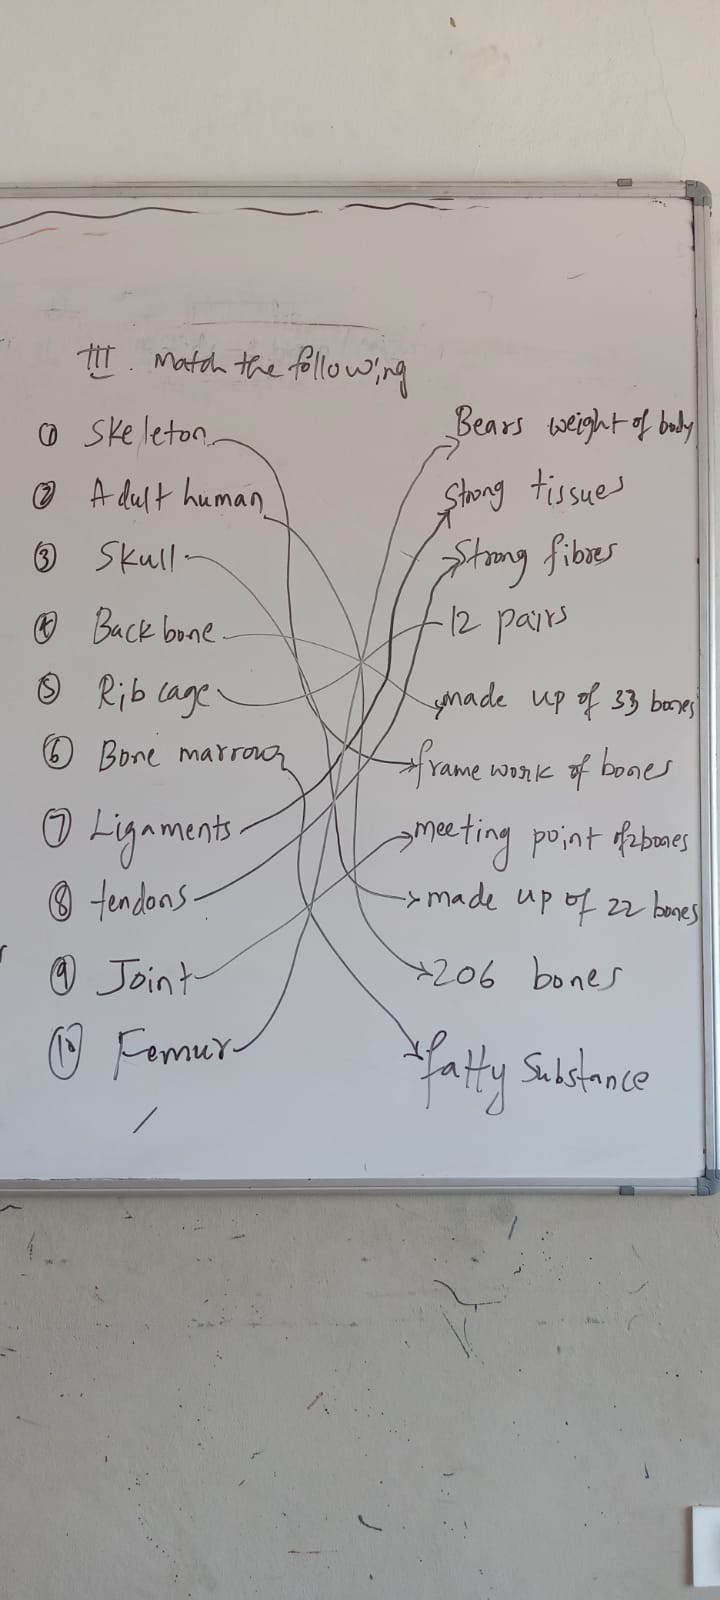 III. Match the following
① Skeleton Bears weight of body
② Adult human Strong tissues
③ Skull Strong fibres
④ Backbone 12 pairs
⑤ Rib cage made up of 33 bones
⑥ Bone marrow frame work of bones
⑦ Ligaments meeting point of 2 bones
⑧ tendons made up of 22 bones
⑨ Joint 206 bones
⑩ Femur fatty substance